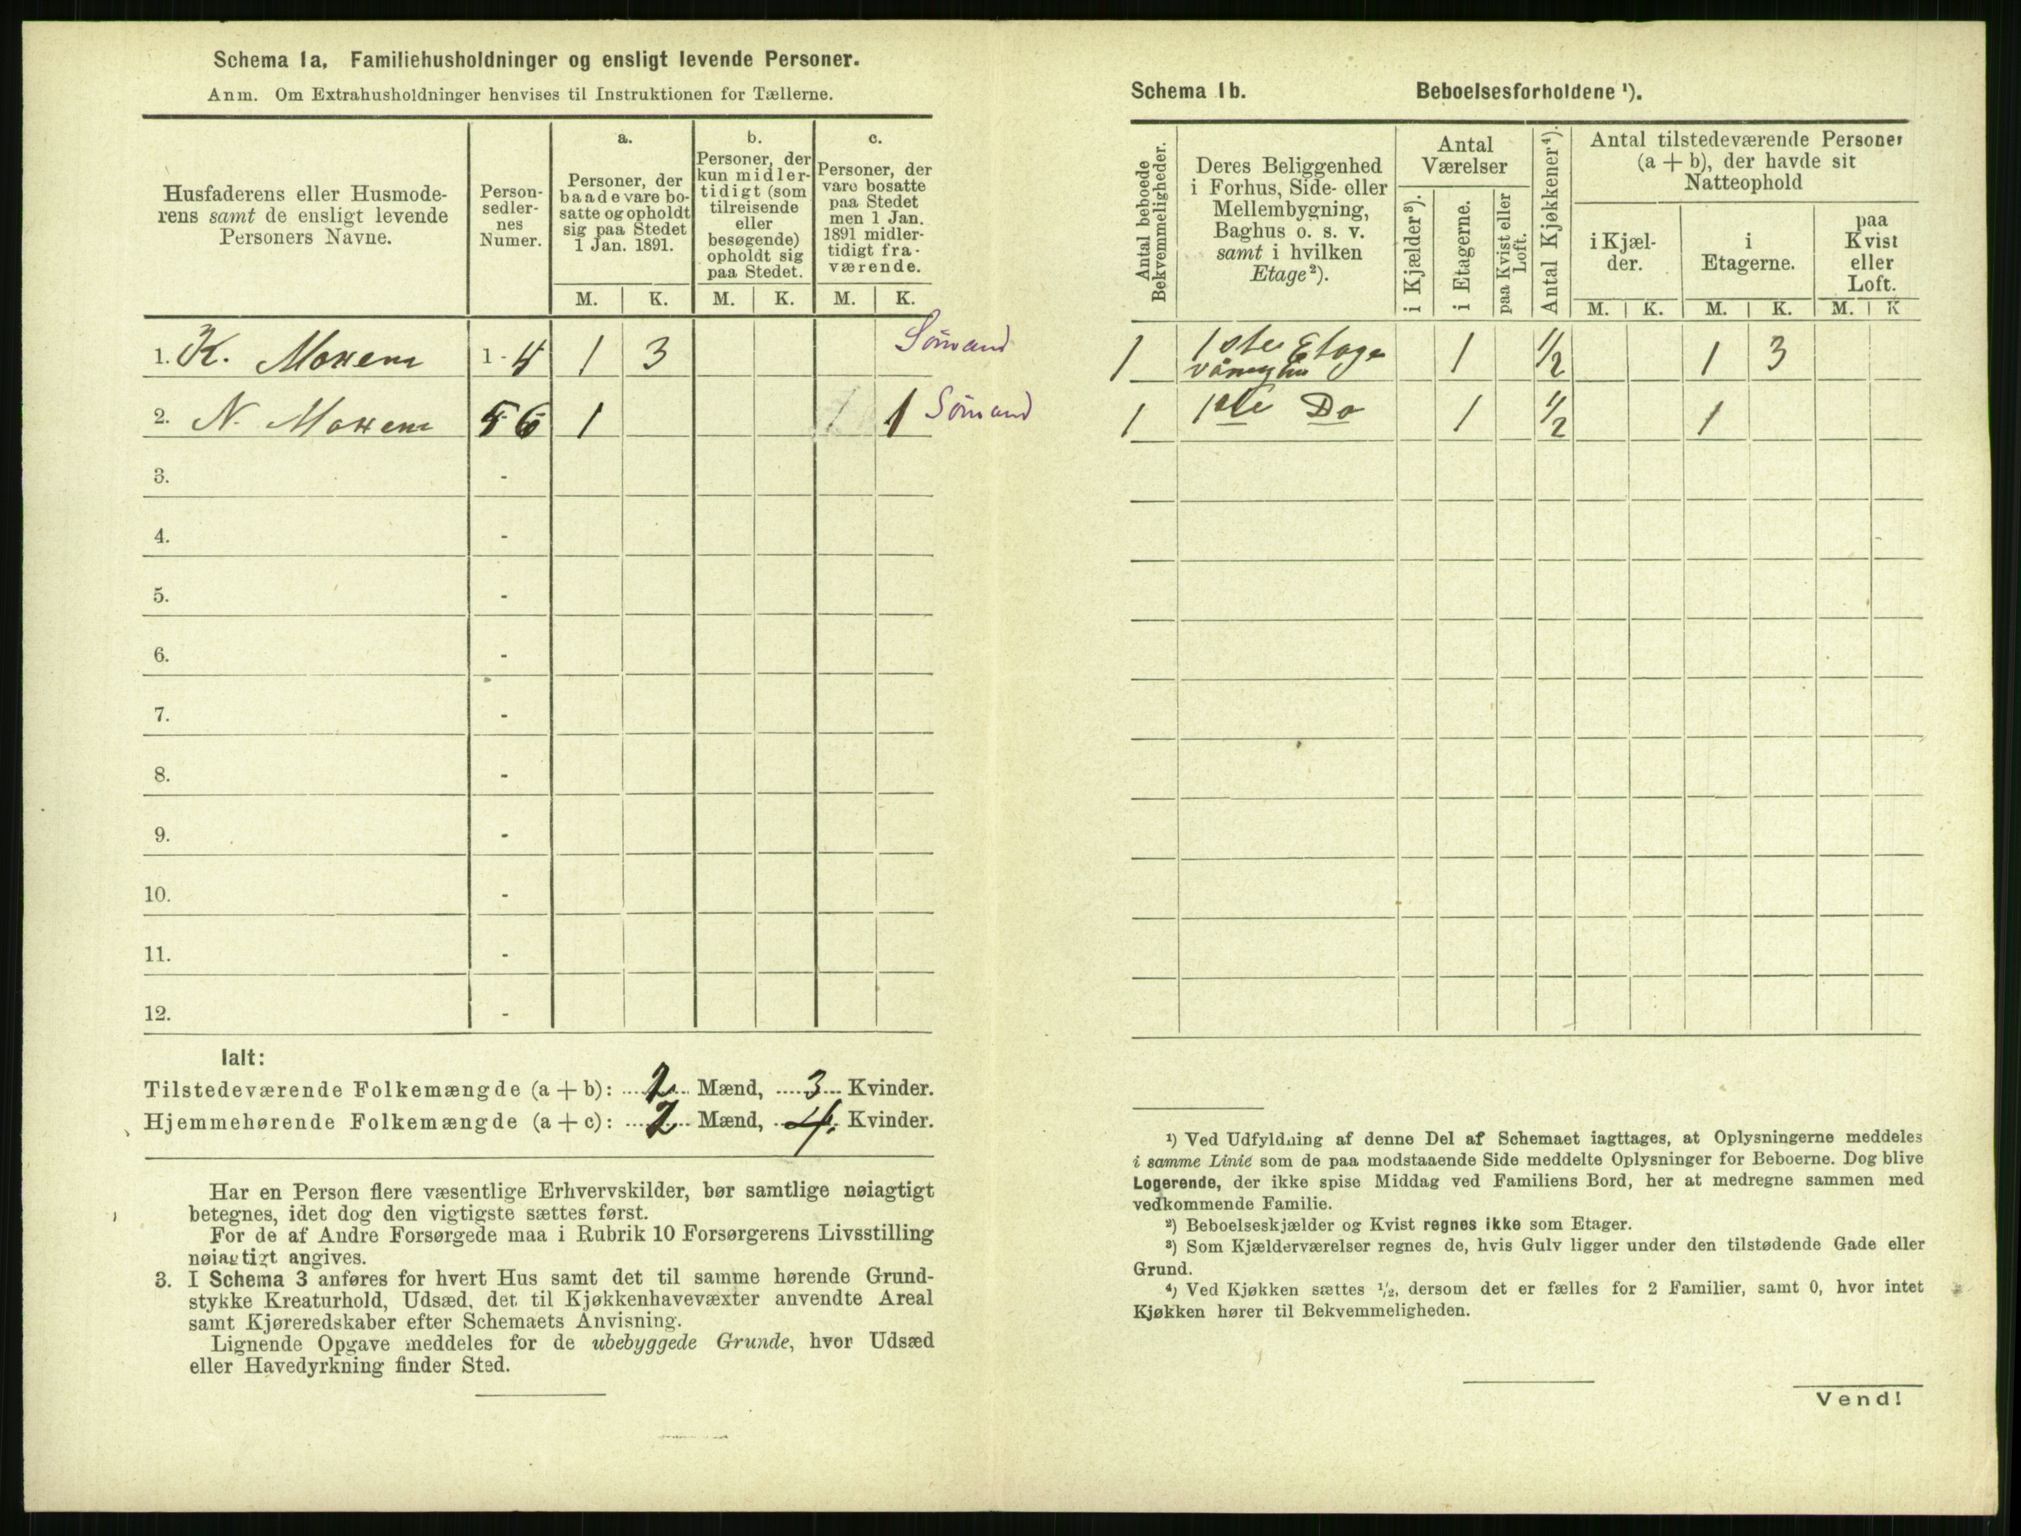 Schema 1a. Familiehusholdninger og ensligt levende Personer.
Anm. Om Extrahusholdninger henvises til Instruktionen for Tællerne.
Husfaderens eller Husmode-
rens samt de ensligt levende
Personers Navne.
Person-
sedler-
nes
Numer.
a.
Personer, der
baade vare bo-
satte og opholdt
sig paa Stedet
1 Jan. 1891.
b.
Personer, der
kun midler-
tidigt (som
tilreisende
eller
besøgende)
opholdt sig
paa Stedet.
c.
Personer, der
vare bosatte
paa Stedet
men 1 Jan.
1891 midler-
tidigt fra-
værende.
M. K. M. K. M. K.
1. K. 1 - 4 1 3 Sömand
2. N. 5-6 1 1 Sömand
3. -
4. -
5. -
6. -
7. -
8. -
9. -
10. -
11. -
12. -
Ialt:
Tilstedeværende Folkemængde (a + b): 2 Mænd, 3 Kvinder.
Hjemmehørende Folkemængde (a + c): 2 Mænd, 4 Kvinder.
Har en Person flere væsentlige Erhvervskilder, bør samtlige nøiagtigt
betegnes, idet dog den vigtigste sættes først.
For de af Andre Forsørgede maa i Rubrik 10 Forsørgerens Livsstilling
nøiagtigt angives.
3. I Schema 3 anføres for hvert Hus samt det til samme hørende Grund-
stykke Kreaturhold, Udsæd, det til Kjøkkenhavevæxter anvendte Areal
samt Kjøreredskaber efter Schemaets Anvisning.
Lignende Opgave meddeles for de ubebyggede Grunde, hvor Udsæd
eller Havedyrkning finder Sted.
Schema 1b. Beboelsesforholdene ¹).
Antal beboede
Bekvemmeligheder.
Deres Beliggenhed
i Forhus, Side- eller
Mellembygning,
Baghus o. s. v.
samt i hvilken
Etage²).
Antal
Værelser
i Kjælder³).
i Etagerne.
paa Kvist eller
Loft.
Antal Kjøkkener⁴).
Antal tilstedeværende Personer
(a + b), der havde sit
Natteophold
i Kjæl-
der.
i
Etagerne.
paa
Kvist
eller
Loft.
M. K. M. K. M. K
1 1ste Etage 1 1/2 1 3
1 1ste Do 1 1/2 1
¹) Ved Udfyldning af denne Del af Schemaet iagttages, at Oplysningerne meddeles
i samme Linie som de paa modstaaende Side meddelte Oplysninger for Beboerne. Dog blive
Logerende, der ikke spise Middag ved Familiens Bord, her at medregne sammen med
vedkommende Familie.
²) Beboelseskjælder og Kvist regnes ikke som Etager.
³) Som Kjælderværelser regnes de, hvis Gulv ligger under den tilstødende Gade eller
Grund.
⁴) Ved Kjøkken sættes 1/2, dersom det er fælles for 2 Familier, samt 0, hvor intet
Kjøkken hører til Bekvemmeligheden.
Vend!